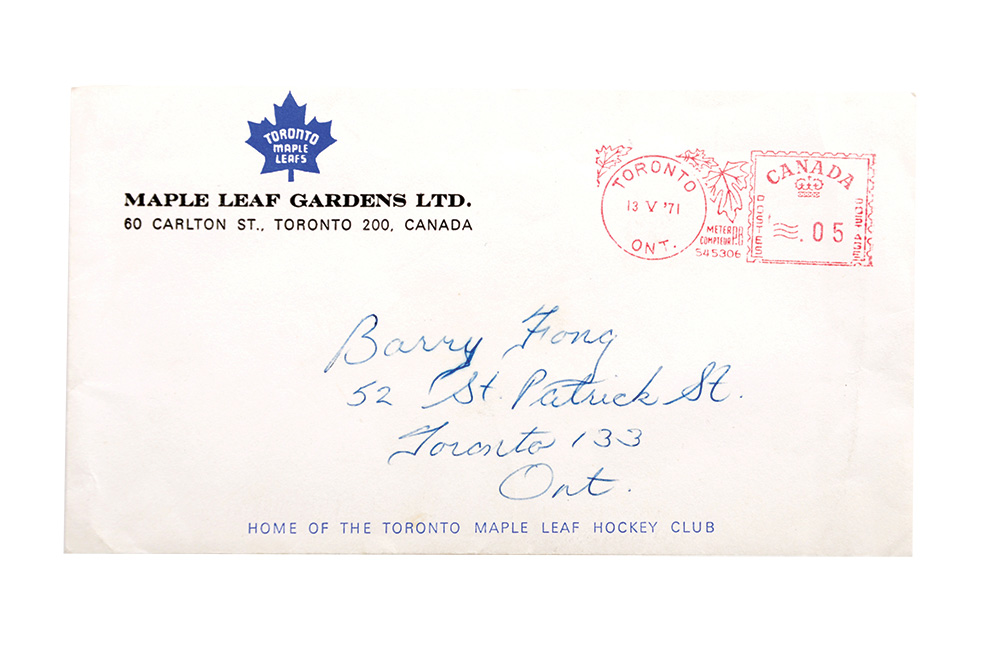 TORONTO
MAPLE
LEAFS
MAPLE LEAF GARDENS LTD.
60 CARLTON ST., TORONTO 200, CANADA
TORONTO
13 V '71
ONT.
METER P.B.
COMPTEUR
545306
CANADA
POSTES
.05
POSTAGE
Barry Fong
52 St. Patrick St.
Toronto 133
Ont.
HOME OF THE TORONTO MAPLE LEAF HOCKEY CLUB